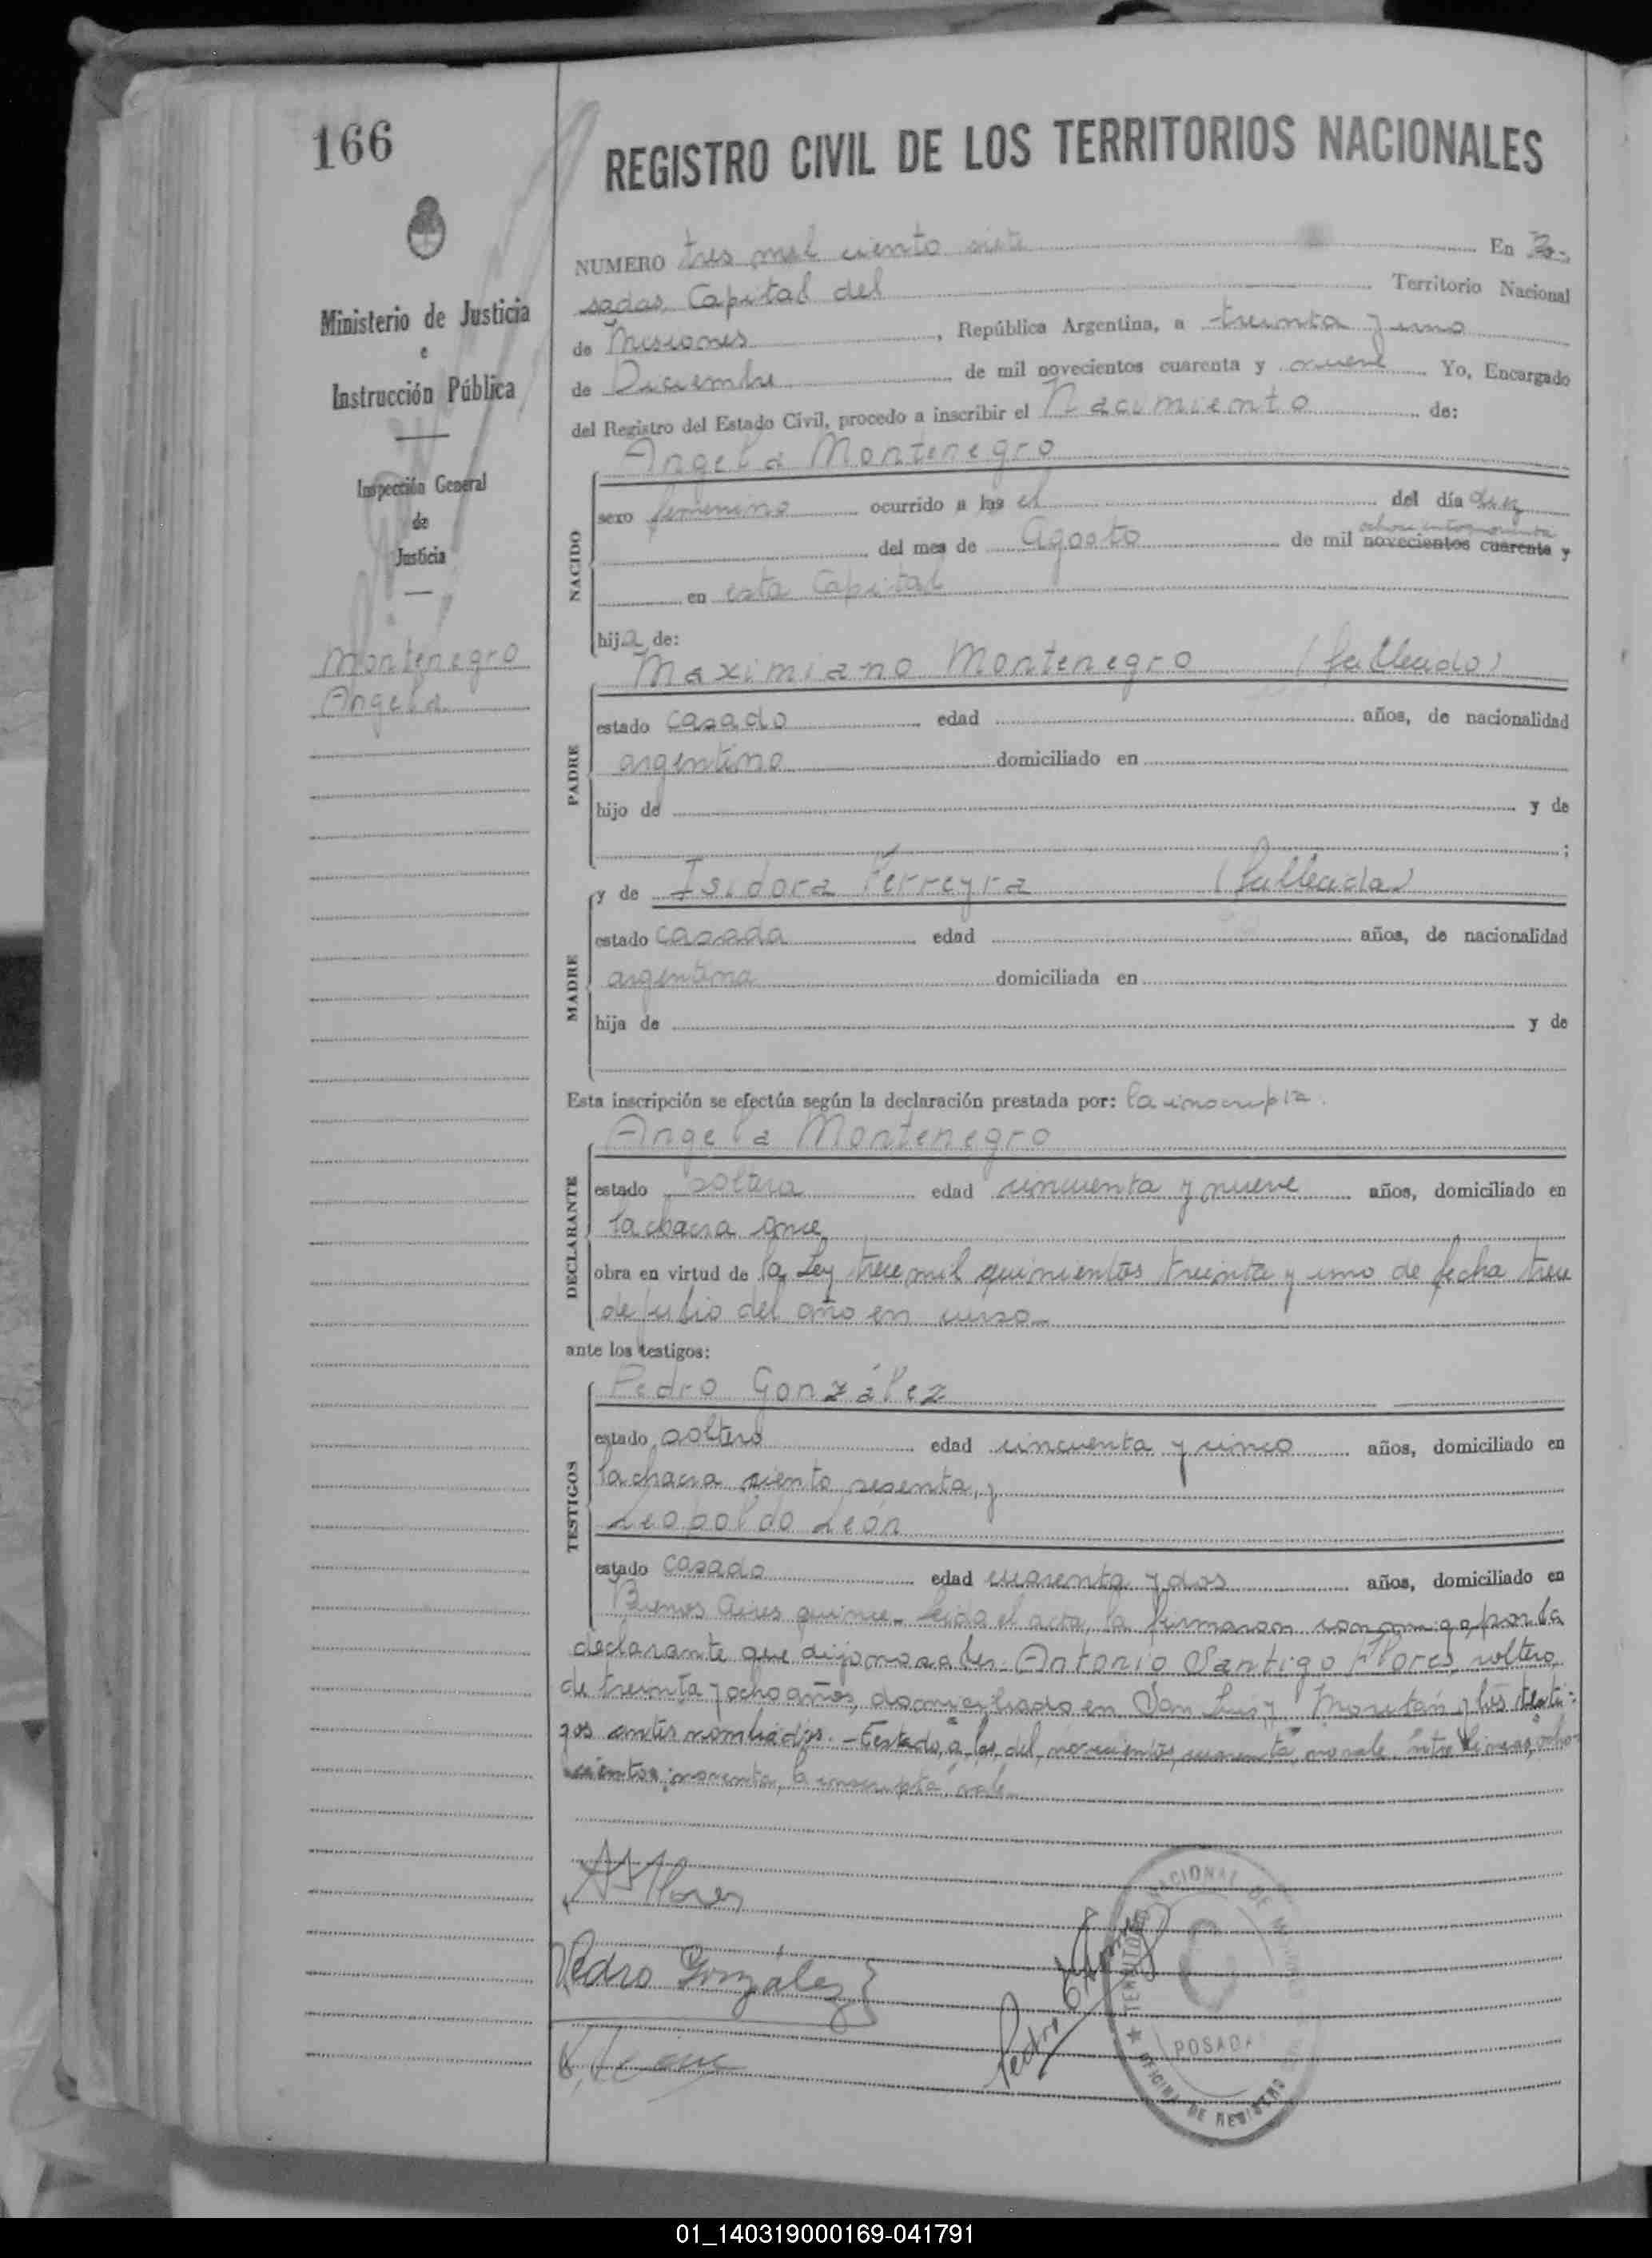 166
REGISTRO CIVIL DE LOS TERRITORIOS NACIONALES
Ministerio de Justicia
e
Instrucción Pública
Inspección General
de
Justicia
Montenegro
Angela
NUMERO tres mil ciento siete En Po-
sadas, Capital del Territorio Nacional
de Misiones, República Argentina, a treinta y uno
de Diciembre de mil novecientos cuarenta y nueve Yo, Encargado
del Registro del Estado Civil, procedo a inscribir el Nacimiento de:
Angela Montenegro
NACIDO
sexo femenino ocurrido a las el del día diez
ochocientos noventa
del mes de Agosto de mil novecientos cuarenta y
en esta Capital
hija de:
Maximiano Montenegro (fallecido)
PADRE
estado casado edad años, de nacionalidad
argentino domiciliado en
hijo de y de
;
y de Isidora Ferreyra (fallecida)
MADRE
estado casada edad años, de nacionalidad
argentina domiciliada en
hija de y de
Esta inscripción se efectúa según la declaración prestada por: la inscripta.
Angela Montenegro
DECLARANTE
estado soltera edad cincuenta y nueve años, domiciliado en
la chacra once
obra en virtud de la Ley trece mil quinientos treinta y uno de fecha trece
de julio del año en curso.
ante los testigos:
Pedro González
TESTIGOS
estado soltero edad cincuenta y cinco años, domiciliado en
la chacra ciento sesenta, y
Leopoldo León
estado casado edad cuarenta y dos años, domiciliado en
Buenos Aires quince.- Leida el acta, la firmaron conmigo, por la
declarante que dijo no saber Antonio Santigo Flores, soltero,
de treinta y ocho años, domiciliado en San Luis y y los testi-
gos antes nombrados.- Testado, a las, del, novecientos, cuarenta, no vale. Entre líneas, ocho-
cientos, noventa, la inscripta, vale.-
A S Flores
Pedro González
L. León
Pedro
TERRITORIO NACIONAL DE MISIONES
POSADAS
OFICINA DE REGISTRO
01_140319000169-041791